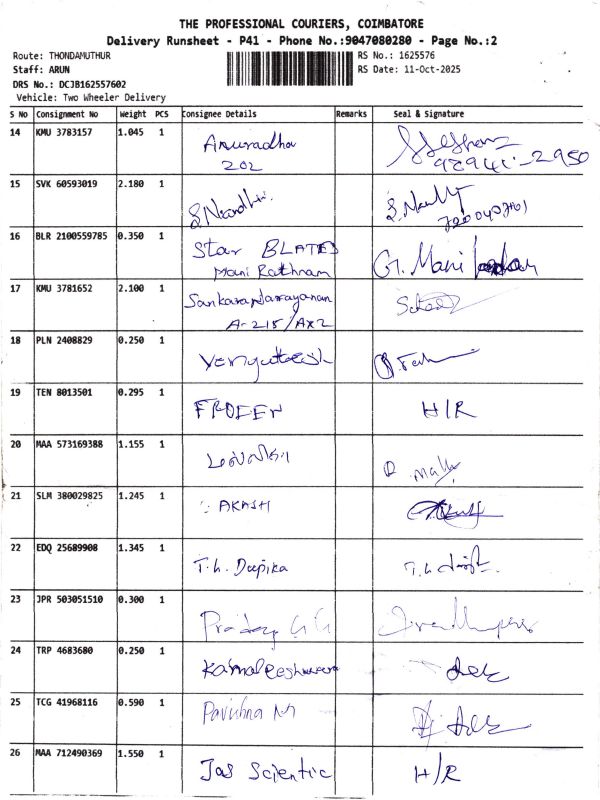 THE PROFESSIONAL COURIERS, COIMBATORE
Delivery Runsheet - P41 - Phone No.:9047080280 - Page No.:2
Route: THONDAMUTHUR
Staff: ARUN
DRS No.: DCJB162557602
Vehicle: Two Wheeler Delivery
RS No.: 1625576
RS Date: 11-Oct-2025
S No Consignment No Weight PCS Consignee Details Remarks Seal & Signature
14 KMU 3783157 1.045 1 Anuradha
202
15 SVK 60593019 2.180 1
16 BLR 2100559785 0.350 1 Star BLATES G. Mani
Mani Rathnam
17 KMU 3781652 2.100 1 Sankaranarayanan
A-215/AX2
18 PLN 2408829 0.250 1
19 TEN 8013501 0.295 1 H/R
20 MAA 573169388 1.155 1
21 SLM 380029825 1.245 1 AKASH
22 EDQ 25689908 1.345 1 T.h. Deepika T.h
23 JPR 503051510 0.300 1 Pradeep G G
24 TRP 4683680 0.250 1 Kamaleeshwaran
25 TCG 41968116 0.590 1 Pavithra M
26 MAA 712490369 1.550 1 Jas Scientic H/R